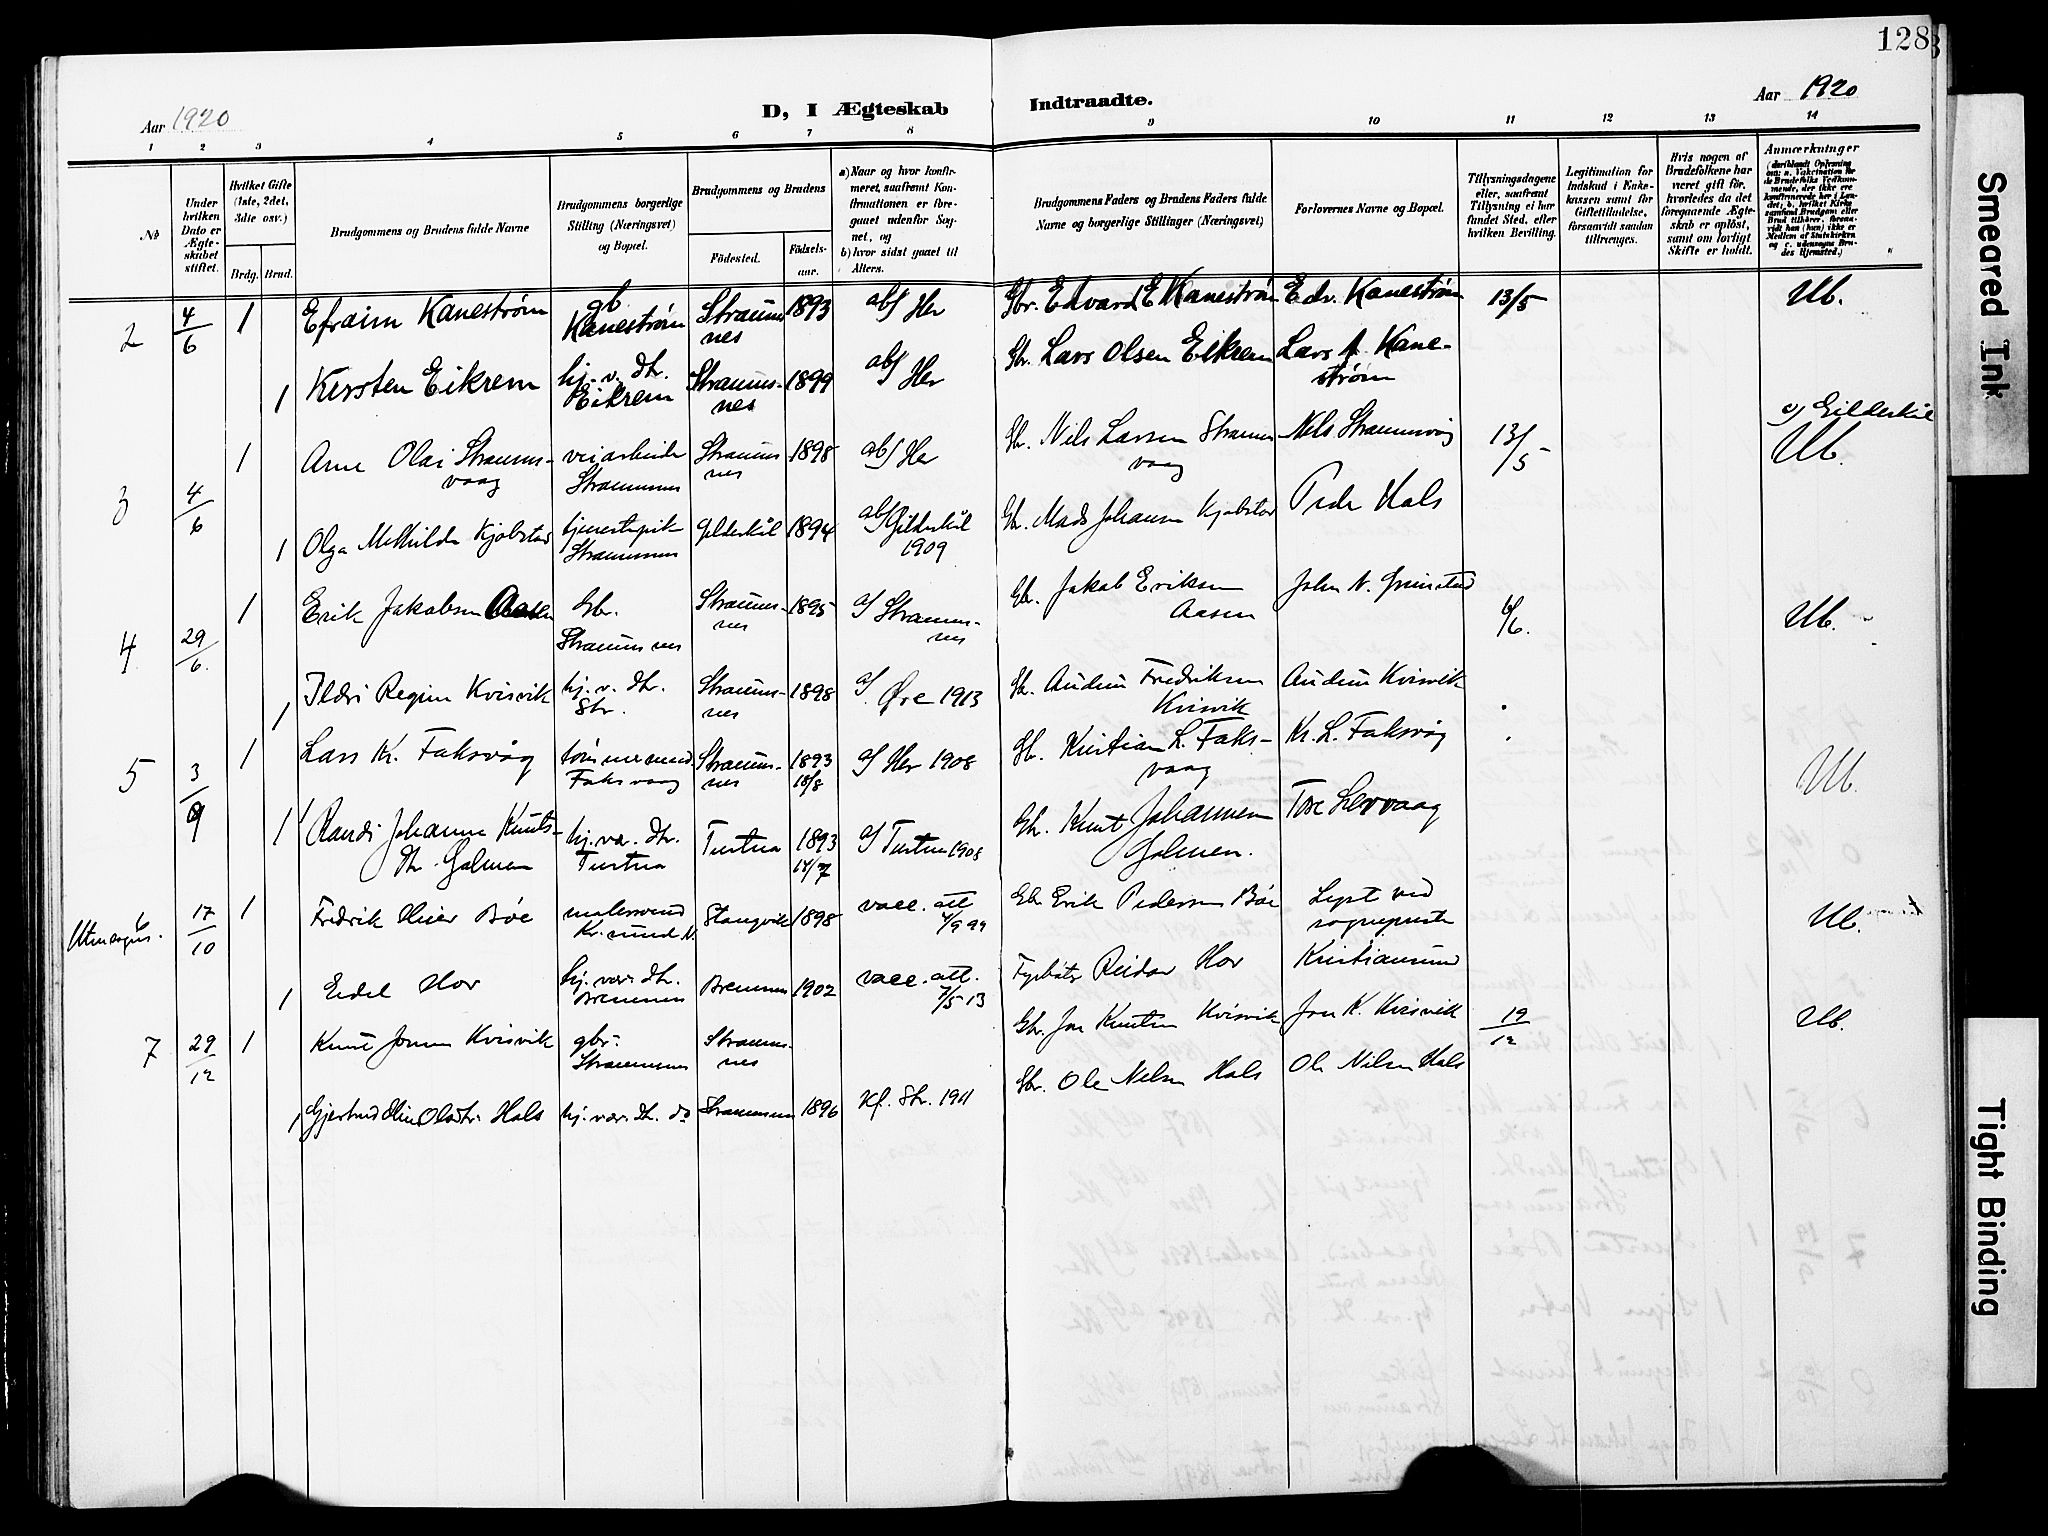 128
Aar 1920
D, I Ægteskab Indtraadte.
Aar 1920
1 2 3 4 5 6 7 8 9 10 11 12 13 14
No
Under hvilken Dato er Ægteskabet stiftet.
Hvilket Gifte (1ste, 2det, 3die osv.)
Brdg. Brud.
Brudgommens og Brudens fulde Navne
Brudgommens borgerlige Stilling (Næringsvei) og Bopæl.
Brudgommens og Brudens
Födested. Födselsaar.
a) Naar og hvor konfirmeret, saafremt Konfirmationen er foregaaet udenfor Sognet, og
b) hvor sidst gaaet til Alters.
Brudgommens Faders og Brudens Faders fulde Navne og borgerlige Stillinger (Næringsvei)
Forlovernes Navne og Bopæl.
Tillysningsdagene eller, saafremt Tillysning ei har fundet Sted, efter hvilken Bevilling.
Legitimation for Indskud i Enkekassen samt for Giftetilladelse, forsaavidt saadan tiltrænges.
Hvis nogen af Brudefolkene har været gift för, hvorledes da det foregaaende Ægteskab er oplöst, samt om lovligt Skifte er holdt.
Anmærkninger
2 4/6 1 Efraim Kanestrøm gb Kanestrøm Straumsnes 1893 a&b Her Gbr. Edvard E Kanestrøm Edv. Kanestrøm 13/5 Ub.
1 Kirsten Eikrem hj. v. dtr. Eikrem Straumsnes 1899 a&b Her Gbr. Lars Olsen Eikrem Lars A. Kanestrøm
3 4/6 1 Arne Olai Straumsvaag veiarbeider Straumsnes Straumsnes 1898 a&b Her Gbr. Nils Larsen Straumsvaag Nils Straumsvåg 13/5 c) Gildeskål Ub.
1 Olga Mathilde Kjøbstad tjenestepik Straumsnes Gildeskål 1894 Gildeskål 1909 Gbr. Mads Johansen Kjøbstad Peder Hals
4 29/6. 1 Erik Jakobsen Aasen Gbr. Straumsnes Straumsnes 1895 a) Straumsnes Gbr. Jakob Eriksen Aasen John N. Grimstad 6/6. Ub.
1 Ildri Regine Kvisvik hj. v. dtr. Str. Straumsnes 1898 a) Øre 1913 Gbr. Audun Fredriksen Kvisvik Audun Kvisvik
5 3/9 1 Lars Kr. Faksvåg tømmermand Faksvaag Straumsnes 1893 18/8 a) Her 1908 Gbr. Kristian L. Faksvaag Kr. L. Faksvåg Ub.
1 Randi Johanne Knutsdtr. Golmen hj. vær. dtr. Tustna Tustna 1893 a) Tustna 1908 Gbr. Knut Johannesen Golmen. Tore Leervaag
6 Utensogns. 17/10 1 Fredrik Meier Bøe malersvend Kr.sund N. Stangvik 1898 vacc. att 4/9 99 Gbr Erik Pedersen Bøe Lyst ved sogneprest Ub.
1 Eidel Hov hj. vær. dtr. Bremsnes Bremsnes 1902 vacc. att. 7/5 13 Reidar Hov Kristiansund
7 29/12 1 Knut Jonsen Kvisvik gbr. Straumsnes Straumsnes Gbr. Jon Knutsen Kvisvik Jon K. Kvisvik 19/12 Ub.
1 Gjertrud Elin Olsdtr. Hals hj. vær. dtr. do Straumsnes 1896 Kf. Str. 1911 Gbr. Ole Nilsen Hals Ole Nilsen Hals
Smeared Ink
Tight Binding